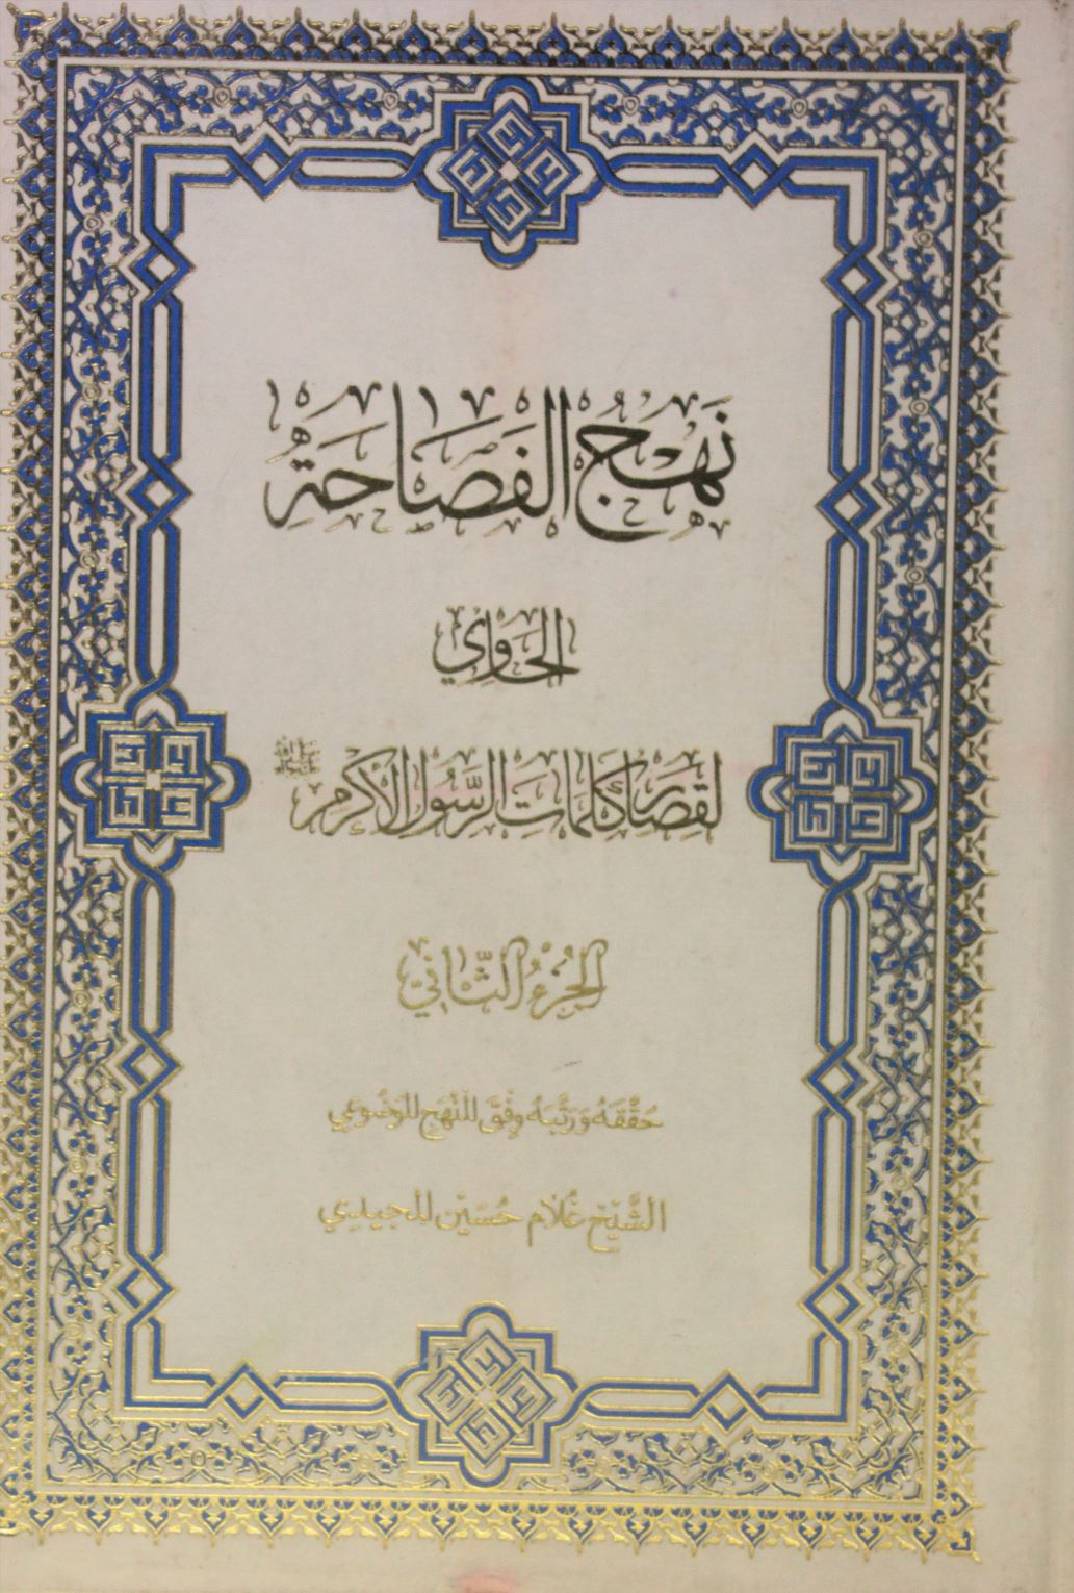 نَهْجُ الفَصَاحَةِ
الحَاوِي
لِقِصَارِ كَلِمَاتِ الرَّسُولِ الأَكْرَمِ ﷺ
الجُزْءُ الثَّانِي
حَقَّقَهُ وَرَتَّبَهُ وِفْقَ المَنْهَجِ المَوْضُوعِي
الشَّيْخ غُلَام حُسَيْن المجيدي